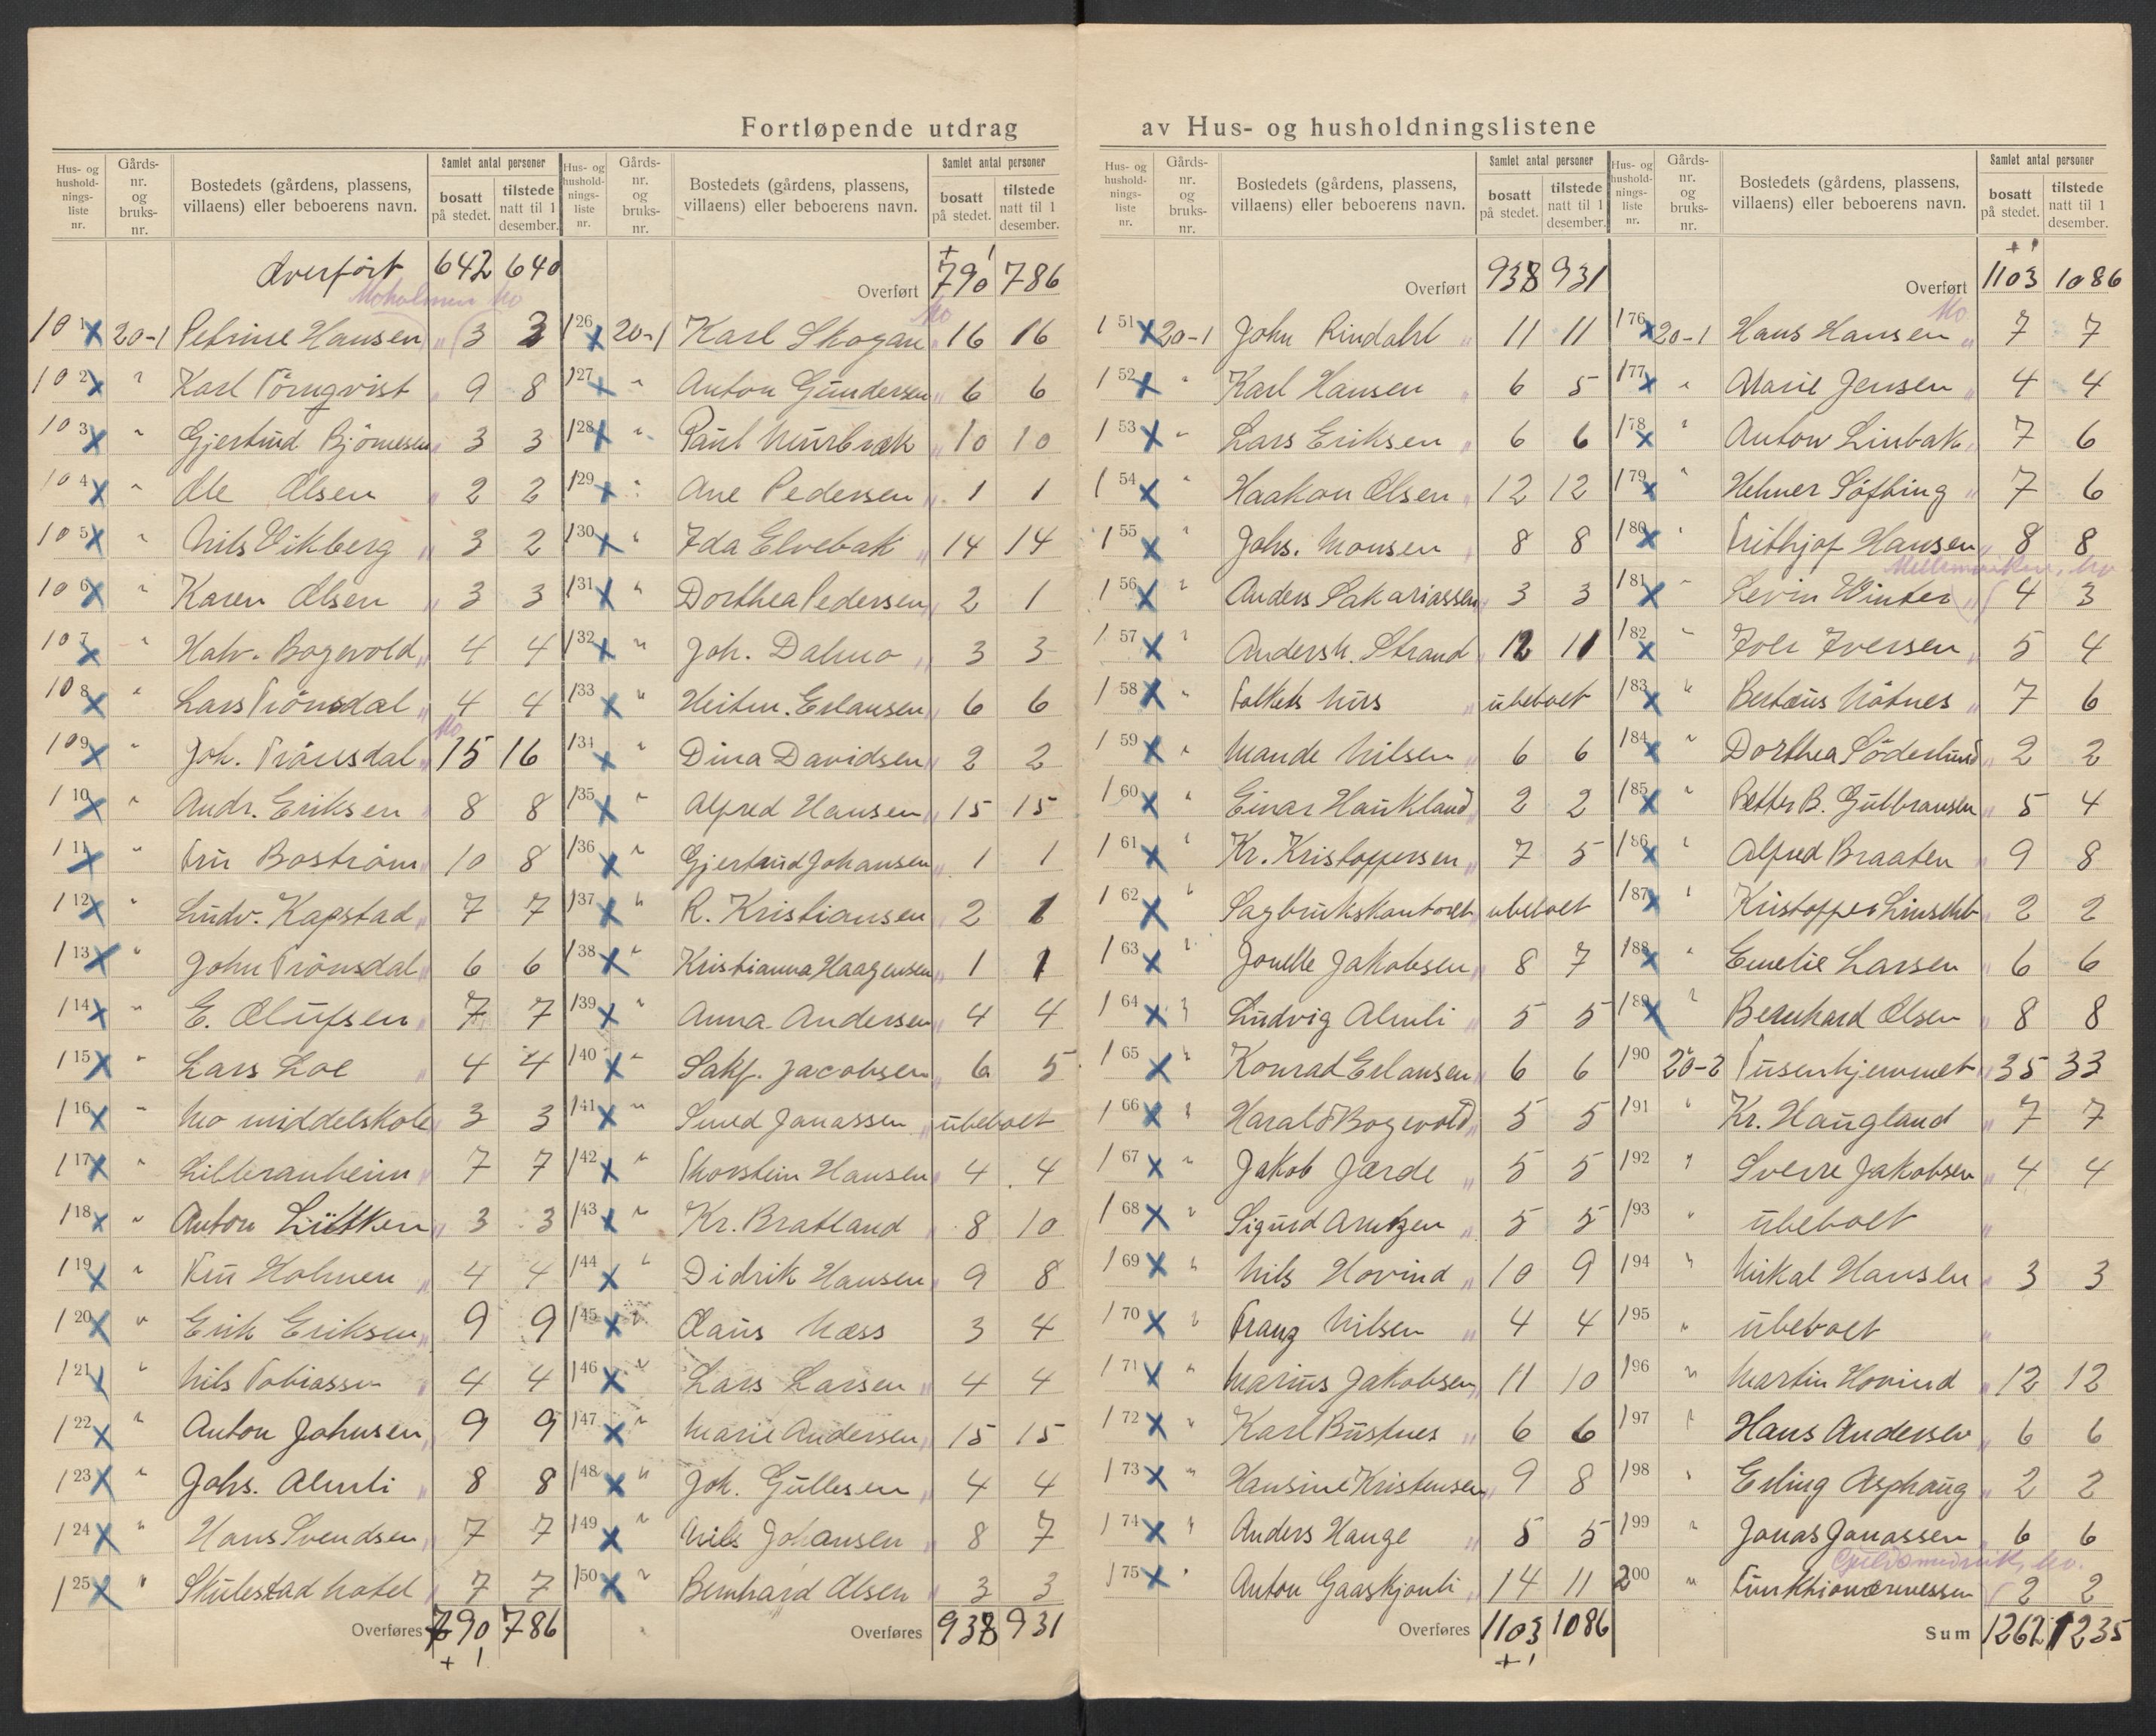 Fortløpende utdrag av Hus- og husholdningslistene
Hus- og husholdningsliste nr. Gårds- nr. og bruks- nr. Bostedets (gårdens, plassens, villaens) eller beboerens navn. Samlet antal personer bosatt på stedet. tilstede natt til 1 desember.
Overført 642 640
Moholmen Mo
101 20-1 Petrine Hansen " 3 3
102 " Karl Törnqvist " 9 8
103 " Gjertrud Björnesen " 3 3
104 " Ole Olsen " 2 2
105 " Nils Vikberg " 3 2
106 " Karen Olsen " 3 3
107 " Halv. Bogevold " 4 4
108 " Lars Trönsdal " 4 4
Mo
109 " Joh. Trönsdal " 15 16
110 " Andr. Eriksen " 8 8
111 " Fru Boström " 10 8
112 " Ludv. Kapstad " 7 7
113 " John Trönsdal " 6 6
114 " E. Olufsen " 7 7
115 " Lars Loe " 4 4
116 " Mo middelskole 3 3
117 " Litleranheim " 7 7
118 " Anton Lütken " 3 3
119 " Fru Holmen " 4 4
120 " Erik Eriksen " 9 9
121 " Nils Tobiassen " 4 4
122 " Anton Johnsen " 9 9
123 " Johs. Almli " 8 8
124 " Hans Svendsen " 7 7
125 " Skulestad hotel " 7 7
Overføres 790 786
+ 1
Hus- og husholdningsliste nr. Gårds- nr. og bruks- nr. Bostedets (gårdens, plassens, villaens) eller beboerens navn. Samlet antal personer bosatt på stedet. tilstede natt til 1 desember.
+ 1
Overført 790 786
Mo
126 20-1 Karl Skogan " 16 16
127 " Anton Gundersen " 6 6
128 " Paul Murbræk " 10 10
129 " Ane Pedersen " 1 1
130 " Ida Elvebak " 14 14
131 " Dorthea Pedersen " 2 1
132 " Joh. Dalmo " 3 3
133 " Heitm. Erlansen " 6 6
134 " Dina Davidsen " 2 2
135 " Alfred Hansen " 15 15
136 " Gjertrud Johansen 1 1
137 " R. Kristiansen " 2 1
138 " Kristianna Haagensen 1 1
139 " Anna Andersen " 4 4
140 " Sakf. Jacobsen " 6 5
141 " Smed Jonassen " ubeboet
142 " Thorstein Hansen " 4 4
143 " Kr. Bratland " 8 10
144 " Didrik Hansen " 9 8
145 " Claus Næss 3 4
146 " Lars Larsen " 4 4
147 " Marie Andersen " 15 15
148 " Joh. Gullesen " 4 4
149 " Nils Johansen " 8 7
150 " Bernhard Olsen " 3 3
Overføres 938 931
Hus- og husholdningsliste nr. Gårds- nr. og bruks- nr. Bostedets (gårdens, plassens, villaens) eller beboerens navn. Samlet antal personer bosatt på stedet. tilstede natt til 1 desember.
Overført 938 931
151 20-1 John Rindahl " 11 11
152 " Karl Hansen " 6 5
153 " Lars Eriksen " 6 6
154 " Haakon Olsen " 12 12
155 " Johs. Monsen " 8 8
156 " Anders Sakariassen " 3 3
157 " Anders N. Strand " 12 11
158 " Folkets hus " ubeboet
159 " Mande Nilsen " 6 6
160 " Einar Haukland " 2 2
161 " Kr. Kristoffersen " 7 5
162 " Sagbrukskontoret " ubeboet
163 " Jonette Jakobsen " 8 7
164 " Ludvig Almli " 5 5
165 " Konrad Erlansen " 6 6
166 " Harald Bogevold " 5 5
167 " Jakob Jærde " 5 5
168 " Sigurd Arntzen " 5 5
169 " Nils Hovind " 10 9
170 " Franz Nilsen " 4 4
171 " Marius Jakobsen " 11 10
172 " Karl Bustnes " 6 6
173 " Hansine Kristensen " 9 8
174 " Anders Hauge " 5 5
175 " Anton Gaaskjønli " 14 11
Overføres 1103 1086
+ 1
Hus- og husholdningsliste nr. Gårds- nr. og bruks- nr. Bostedets (gårdens, plassens, villaens) eller beboerens navn. Samlet antal personer bosatt på stedet. tilstede natt til 1 desember.
+ 1
Overført 1103 1086
Mo
176 20-1 Hans Hansen " 7 7
177 " Marie Jensen " 4 4
178 " Anton Linbak " 7 6
179 " Helmer Söfting " 7 6
180 " Frithjof Hansen " 8 8
Mo
181 " Levin Winter " 4 3
182 " Iver Iversen " 5 4
183 " Bertæus Måtnes " 7 6
184 " Dorthea Söderlund " 2 2
185 " Petter B. Gulbransen 5 4
186 " Alfred Braaten " 9 8
187 " Kristoffer " 2 2
188 " Emelie Larsen " 6 6
189 " Bernhard Olsen " 8 8
190 20-2 Tusenhjemmet " 35 33
191 " Kr. Haugland " 7 7
192 " Sverre Jakobsen " 4 4
193 " ubeboet "
194 " Mikal Hansen " 3 3
195 " ubeboet "
196 " Martin Hovind " 12 12
197 " Hans Andersen " 6 6
198 " Erling Asphaug " 2 2
199 " Jonas Jonassen " 6 6
Guldsmedvik, Mo.
200 " Funktionærmessen 2 2
Sum 1262 1235